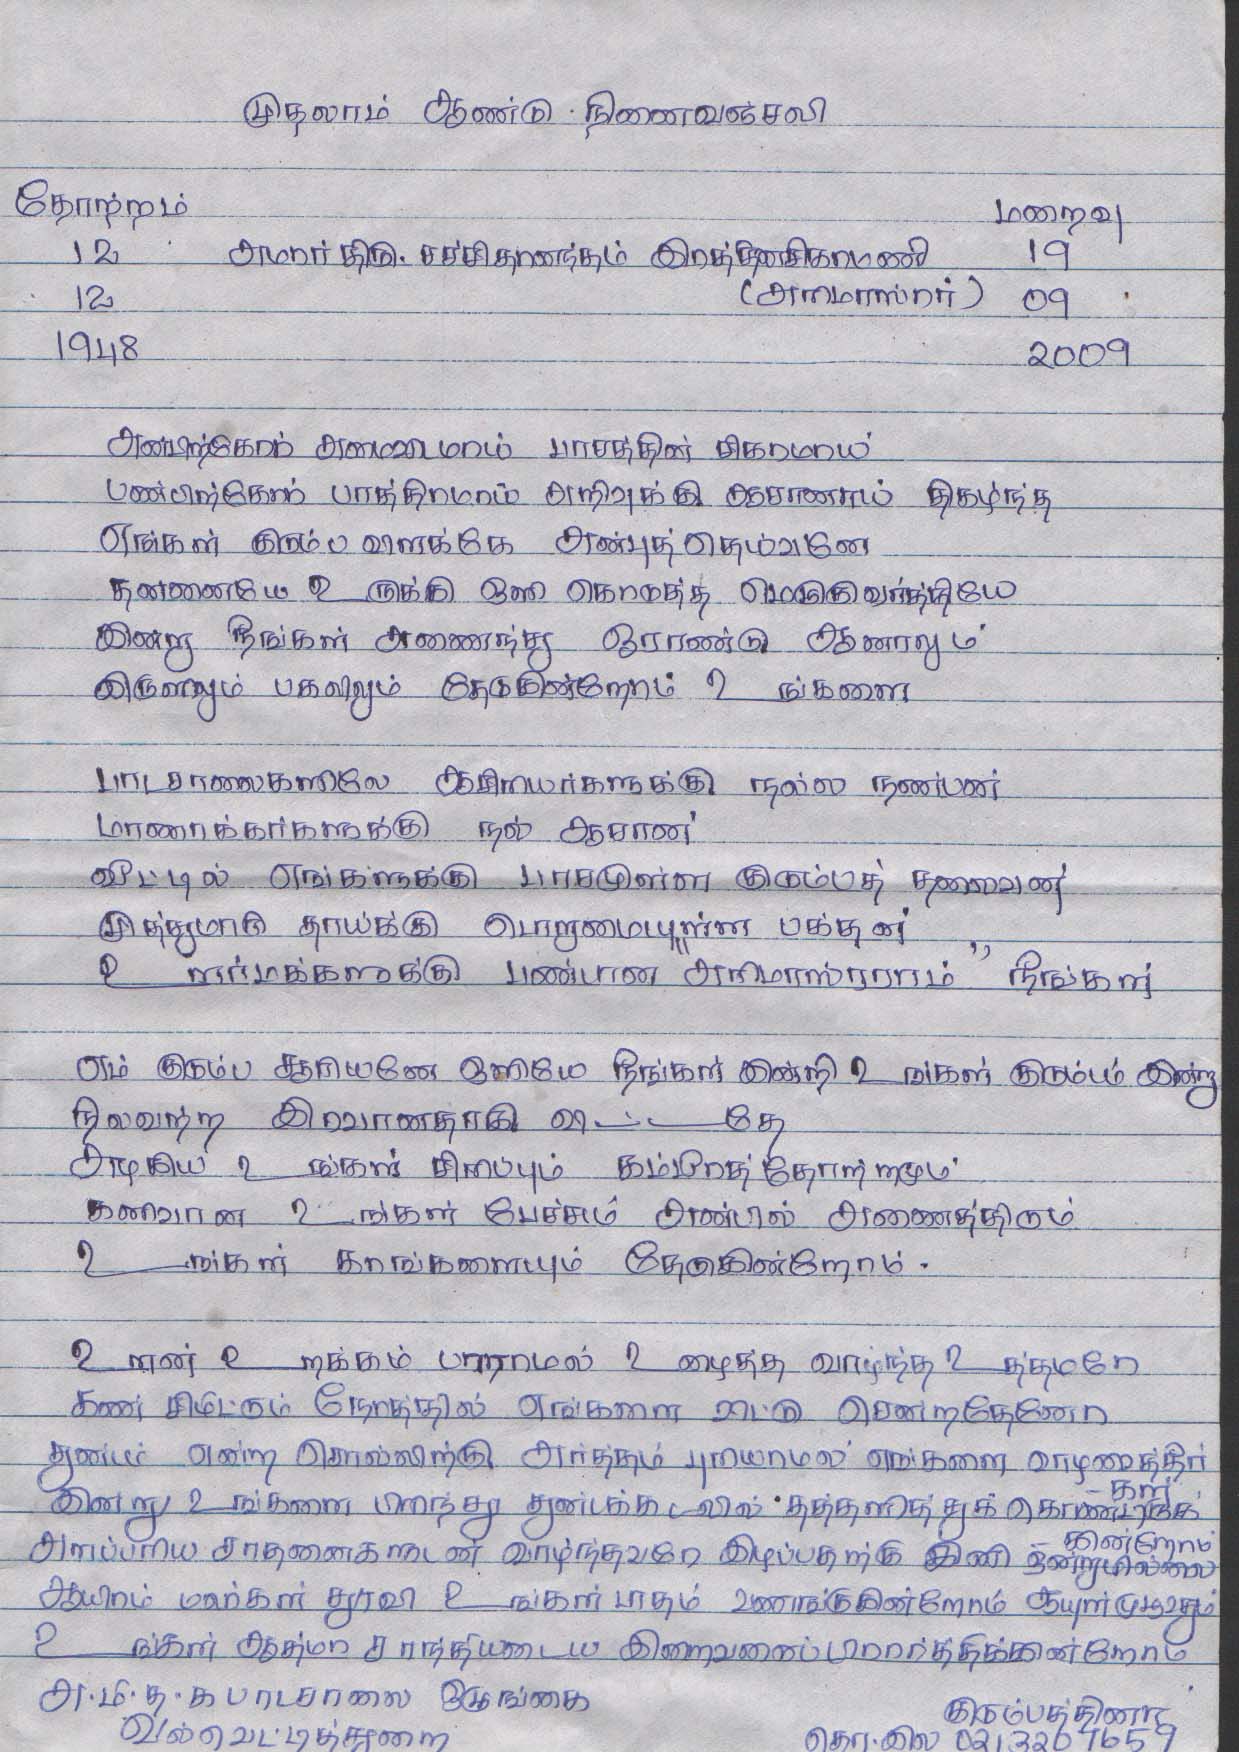 முதலாம் ஆண்டு நினைவஞ்சலி
தோற்றம் மறைவு
12 அமரர் திரு. சச்சிதானந்தம் இரத்தினசிகாமணி 19
12 (அரிமாஸ்ரர்) 09
1948 2009
அன்பிற்கோர் அணையாய் பாசத்தின் சிகரமாய்
பண்பிற்கோர் பாத்திரமாய் அறிவுக்கு ஆசானாய் திகழ்ந்த
எங்கள் குடும்ப விளக்கே அன்புத் தெய்வமே
தன்னையே உருக்கி ஒளி கொடுத்த மெழுகுவர்த்தியே
இன்று நீங்கள் அணைந்து ஓராண்டு ஆனாலும்
இருளிலும் பகலிலும் தேடுகின்றோம் உங்களை
பாடசாலைகளிலே ஆசிரியர்களுக்கு நல்ல நண்பன்
மாணாக்கர்களுக்கு நல் ஆசான்
வீட்டில் எங்களுக்கு பாசமுள்ள குடும்பத் தலைவன்
முத்துமாரி தாய்க்கு பொறுமையுள்ள பக்தன்
உளர்மக்களுக்கு பண்பான "அரிமாஸ்ரராம்" நீங்கள்
எம் குடும்ப சூரியனே ஒளியே நீங்கள் இன்றி உங்கள் குடும்பம் இன்று
நிலவற்ற இரவானதாகி விட்டதே
அழகிய உங்கள் சிரிப்பும் கம்பீரத்தோற்றமும்
கனிவான உங்கள் பேச்சும் அன்பில் அணைத்திடும்
உங்கள் கரங்களையும் தேடுகின்றோம்.
உளன் உறக்கம் பாராமல் உழைத்த வாழ்ந்த உத்தமரே
கண் சிமிட்டும் நேரத்தில் எங்களை விட்டு சென்றதேனோ
துன்பம் என்ற சொல்லிற்கு அர்த்தம் புரியாமல் எங்களை வாழவைத்தீர்
-கள்
இன்று உங்களை பிரிந்து துன்பக்கடலில் தத்தளித்துக் கொண்டிருக்
-கின்றோம்
அளப்பரிய சாதனைகளுடன் வாழ்ந்தவரே இழப்பதற்கு இனி ஒன்றுமில்லை
ஆயிரம் மலர்கள் தூவி உங்கள் பாதம் வணங்குகின்றோம் ஆயுள் முழுவதும்
உங்கள் ஆத்மா சாந்தியடைய இறைவனைப் பிரார்த்திக்கின்றோம்
அ.மி.த.க பாடசாலை இருங்கை
வல்வெட்டித்துறை
குடும்பத்தினர்
தொ.லை 0213207659